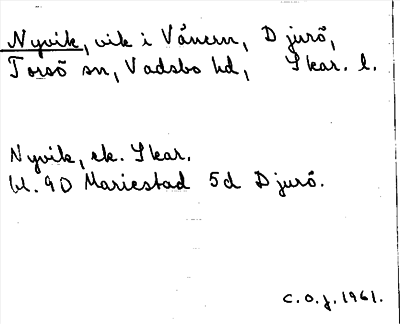 Nyvik, vik i Vänern, Djurö,
Torsö sn, Vadsbo hd, Skar. l.
Nyvik, ek. Skar.
bl. 9D Mariestad 5d Djurö.
C.O.J. 1961.